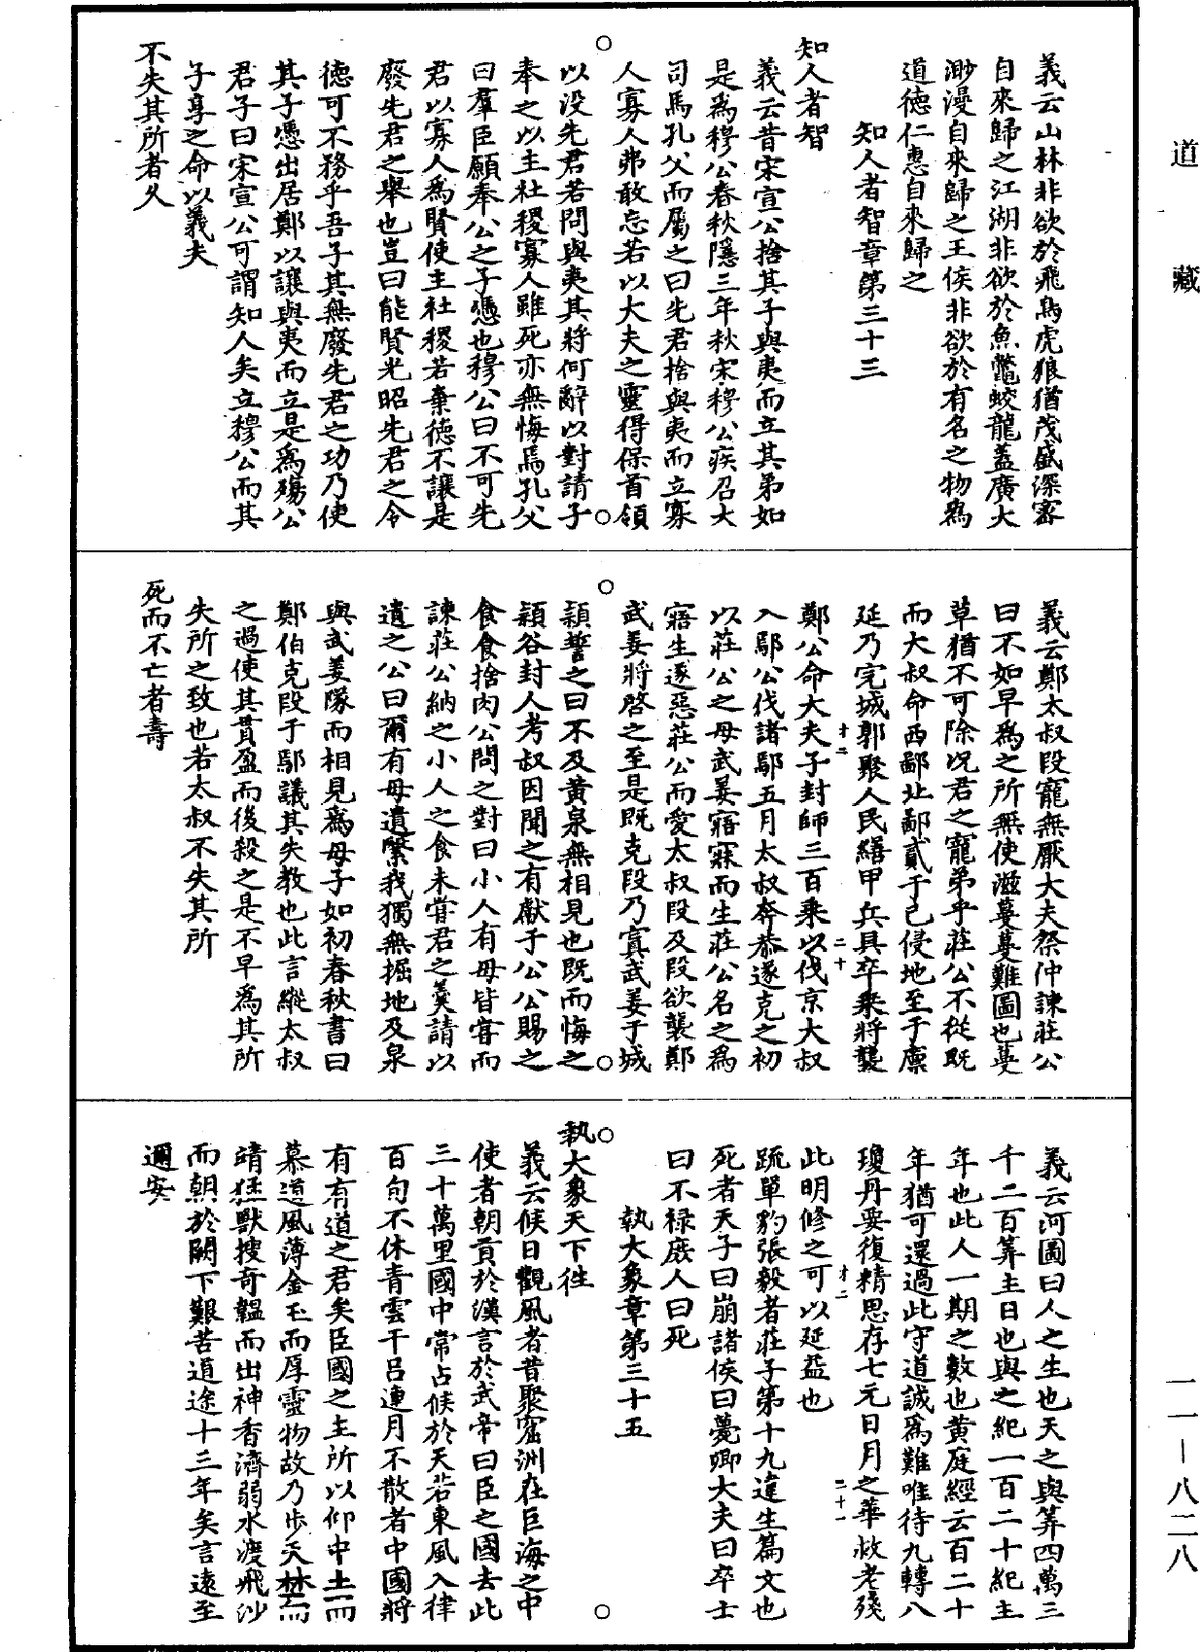 道藏
義云山林非欲於飛鳥虎狼猶茂盛深密
自來歸之江湖非欲於魚鼈蛟龍蓋廣大
渺漫自來歸之王侯非欲於有名之物爲
道德仁惠自來歸之
知人者智章第三十三
知人者智
義云昔宋宣公捨其子與夷而立其弟如
是爲穆公春秋隱三年秋宋穆公疾召大
司馬孔父而屬之曰先君捨與夷而立寡
人寡人弗敢忘若以大夫之靈得保首領
以没先君若問與夷其將何辭以對請子
奉之以主社稷寡人雖死亦無悔焉孔父
曰羣臣願奉公之子憑也穆公曰不可先
君以寡人爲賢使主社稷若棄德不讓是
廢先君之舉也豈曰能賢光昭先君之令
德可不務乎吾子其無廢先君之功乃使
其子憑出居鄭以讓與夷而立是爲殤公
君子曰宋宣公可謂知人矣立穆公而其
子享之命以義夫
不失其所者久
義云鄭太叔段寵無厭大夫祭仲諫莊公
曰不如早爲之所無使滋蔓蔓難圖也蔓
草猶不可除况君之寵弟乎莊公不從既
而大叔命西鄙北鄙貳于己侵地至于廩
延乃完城郭聚人民繕甲兵具卒乘將襲
鄭公命大夫子封師三百乘以伐京大叔
入鄢公伐諸鄢五月太叔奔恭遂克之初
以莊公之母武姜寤寐而生莊公名之爲
寤生遂惡莊公而愛太叔段及段欲襲鄭
武姜將啓之至是既克段乃寘武姜于城
潁誓之曰不及黃泉無相見也既而悔之
潁谷封人考叔因聞之有獻于公公賜之
食食捨肉公問之對曰小人有母皆嘗而
諫莊公納之小人之食未嘗君之羹請以
遺之公曰爾有母遺繄我獨無掘地及泉
與武姜隊而相見爲母子如初春秋書曰
鄭伯克段于鄢議其失教也此言縱太叔
之過使其貫盈而後殺之是不早爲其所
失所之致也若太叔不失其所
死而不亡者壽
義云河圖曰人之生也天之與筭四萬三
千二百筭主日也與之紀一百二十紀主
年也此人一期之數也黃庭經云百二十
年猶可還過此守道誠爲難唯待九轉八
瓊丹要復精思存七元日月之華救老殘
此明修之可以延益也
䟽單豹張毅者莊子第十九達生篇文也
死者天子曰崩諸侯曰薨卿大夫曰卒士
曰不禄庶人曰死
執大象章第三十五
執大象天下徃
義云候日觀風者昔聚窟洲在巨海之中
使者朝貢於漢言於武帝曰臣之國去此
三十萬里國中常占候於天若東風入律
百旬不休青雲干吕連月不散者中國將
有有道之君矣臣國之主所以仰中土而
慕道風薄金玉而厚靈物故乃步天林而
靖猛獸搜奇韞而出神香濟弱水渡飛沙
而朝於闕下艱苦道途十三年矣言遠至
邇安
一一—八二八